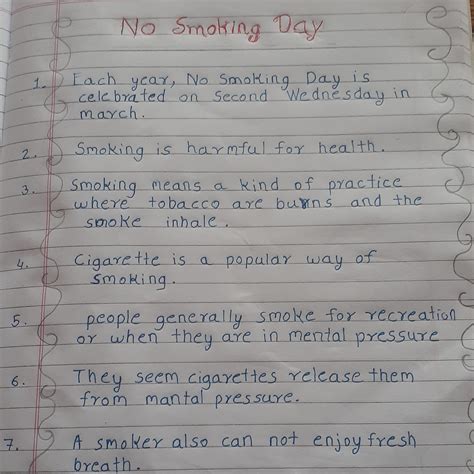 No Smoking Day
1. Each year, No Smoking Day is
celebrated on Second Wednesday in
march.
2. Smoking is harmful for health.
3. Smoking means a kind of practice
where tobacco are burns and the
smoke inhale.
4. Cigarette is a popular way of
smoking.
5. people generally smoke for recreation
or when they are in mental pressure
6. They seem cigarettes release them
from mantal pressure.
7. A smoker also can not enjoy fresh
breath.